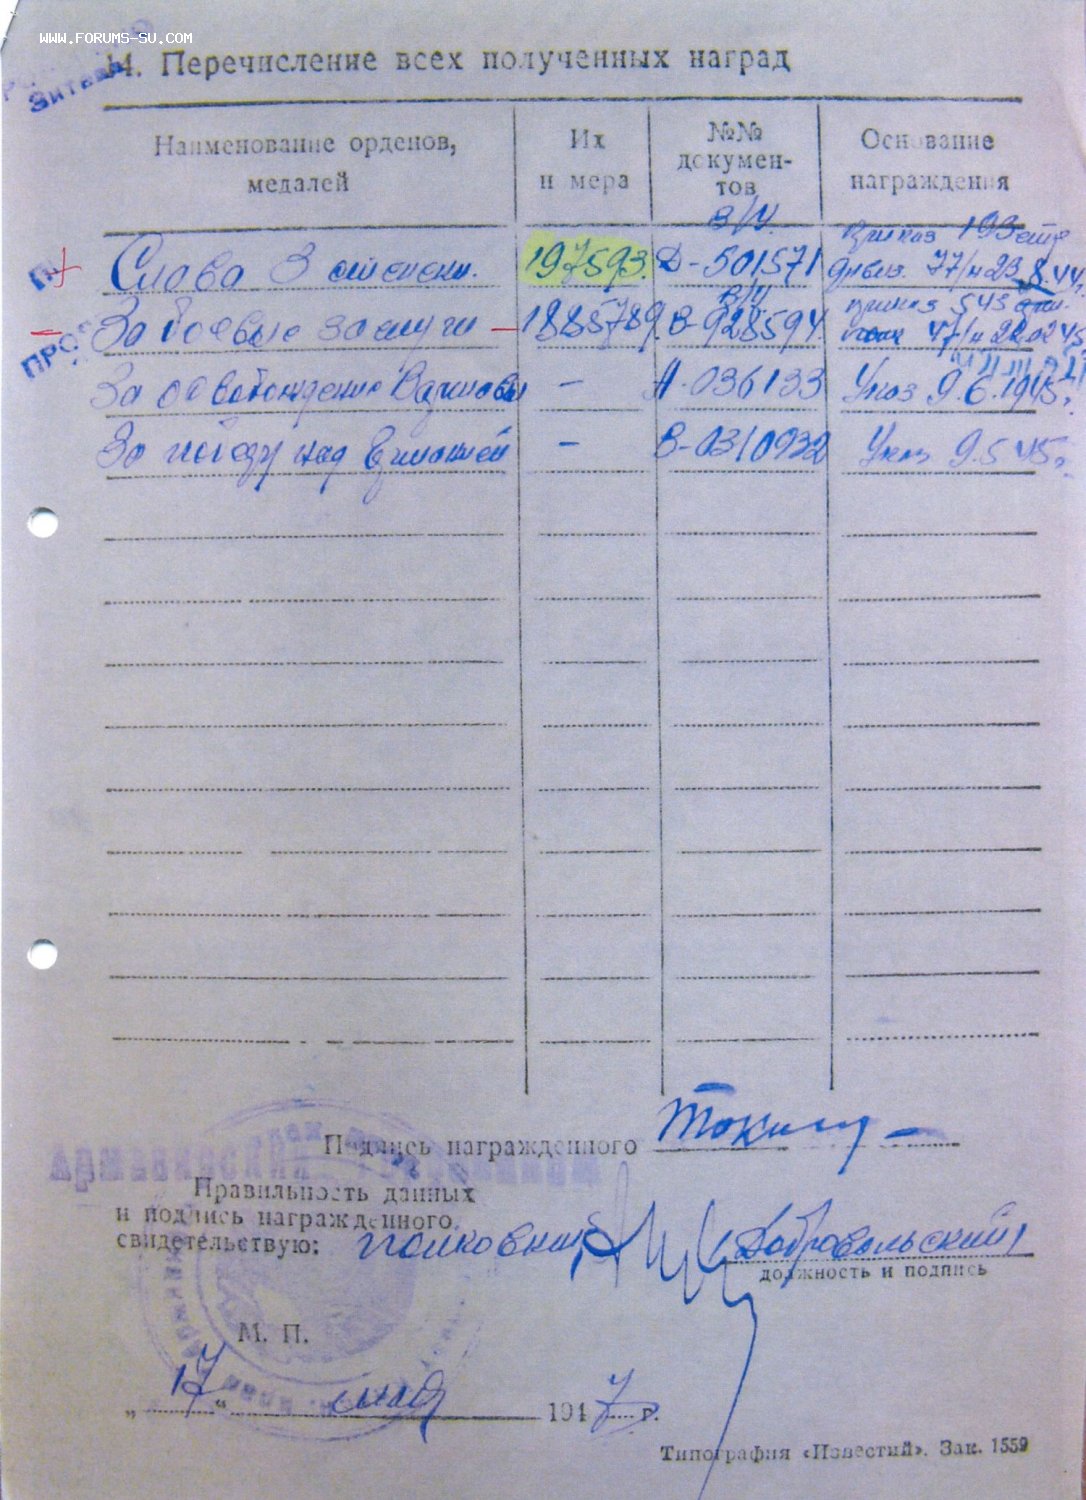 WWW.FORUMS-SU.COM
14. Перечисление всех полученных наград
Наименование орденов, медалей
Их н мера
№№ докумен-тов
Основание награждения
в/у.
Приказ 193 стр
Слава 3 степени. 197593. Д-501571 дивиз. 77/н 23.8.44г.
в/у
приказ 545
За боевые заслуги 1885789. В-928594. 47/н 22.02.45г.
За освобождение Варшавы — А-036133 Указ 9.6.1945г.
За победу над Германией — В-0310932 Указ 9.5.45г.
Подпись награжденного
Правильность данных
и подпись награжденного
свидетельствую: полковник Добровольский
должность и подпись
М. П.
„17“ мая 1947 г.
Типография «Известий». Зак. 1559